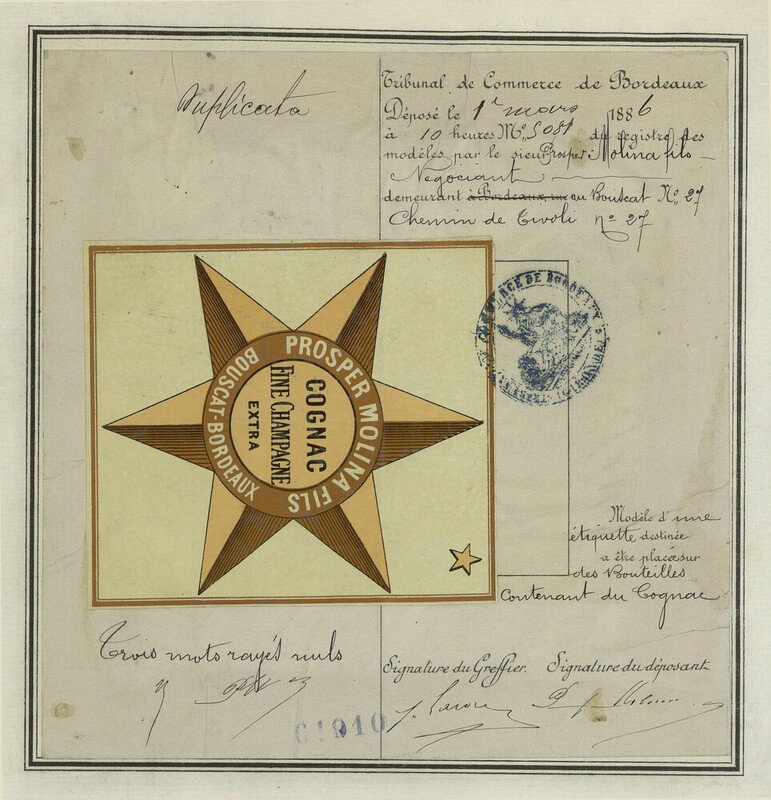 Duplicata
Tribunal de Commerce de Bordeaux
Déposé le 1er mars 1886
à 10 heures No. 5081 du registre des
modèles par le sieur Prosper Molina fils
Négociant
demeurant à Bordeaux, rue au Bouscat No. 27
Chemin de Tivoli no 27
PROSPER MOLINA FILS
BOUSCAT-BORDEAUX
COGNAC
FINE CHAMPAGNE
EXTRA
DE BORDEAUX
Modèle d'une
étiquette destinée
a être placée sur
des Bouteilles
Contenant du Cognac
Trois mots rayés nuls
Signature du Greffier. Signature du déposant
61910